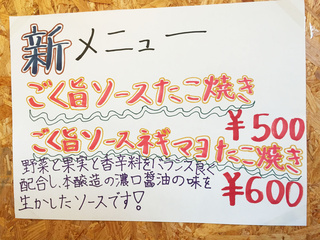 新メニュー
ごく旨ソースたこ焼き
¥500
ごく旨ソースネギマヨたこ焼き
¥600
野菜と果実と香辛料をバランス良く
配合し、本醸造の濃口醤油の味を
生かしたソースです♡